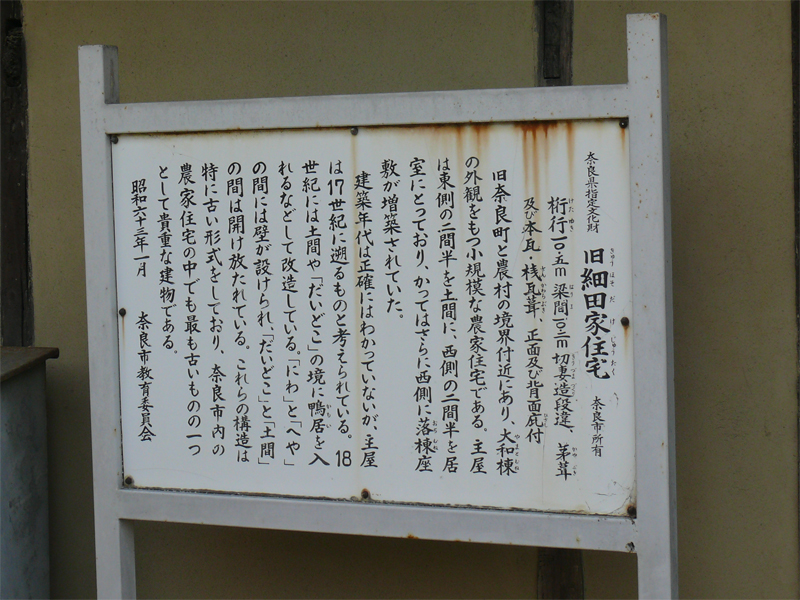 奈良県指定文化財 旧細田家住宅 奈良市所有
桁行一〇・五m 梁間一〇・三m 切妻造段違、茅葺
及び本瓦・桟瓦葺、正面及び背面庇付
旧奈良町と農村の境界付近にあり、大和棟
の外観をもつ小規模な農家住宅である。主屋
は東側の二間半を土間に、西側の二間半を居
室にとっており、かってはさらに西側に落棟座
敷が増築されていた。
建築年代は正確にはわかっていないが、主屋
は17世紀に遡るものと考えられている。18
世紀には土間や「だいどこ」の境に鴨居を入
れるなどして改造している。「にわ」と「へや」
の間には壁が設けられ、「だいどこ」と「土間」
の間は開け放たれている。これらの構造は
特に古い形式をしており、奈良市内の
農家住宅の中でも最も古いものの一つ
として貴重な建物である。
昭和六十三年一月 奈良市教育委員会